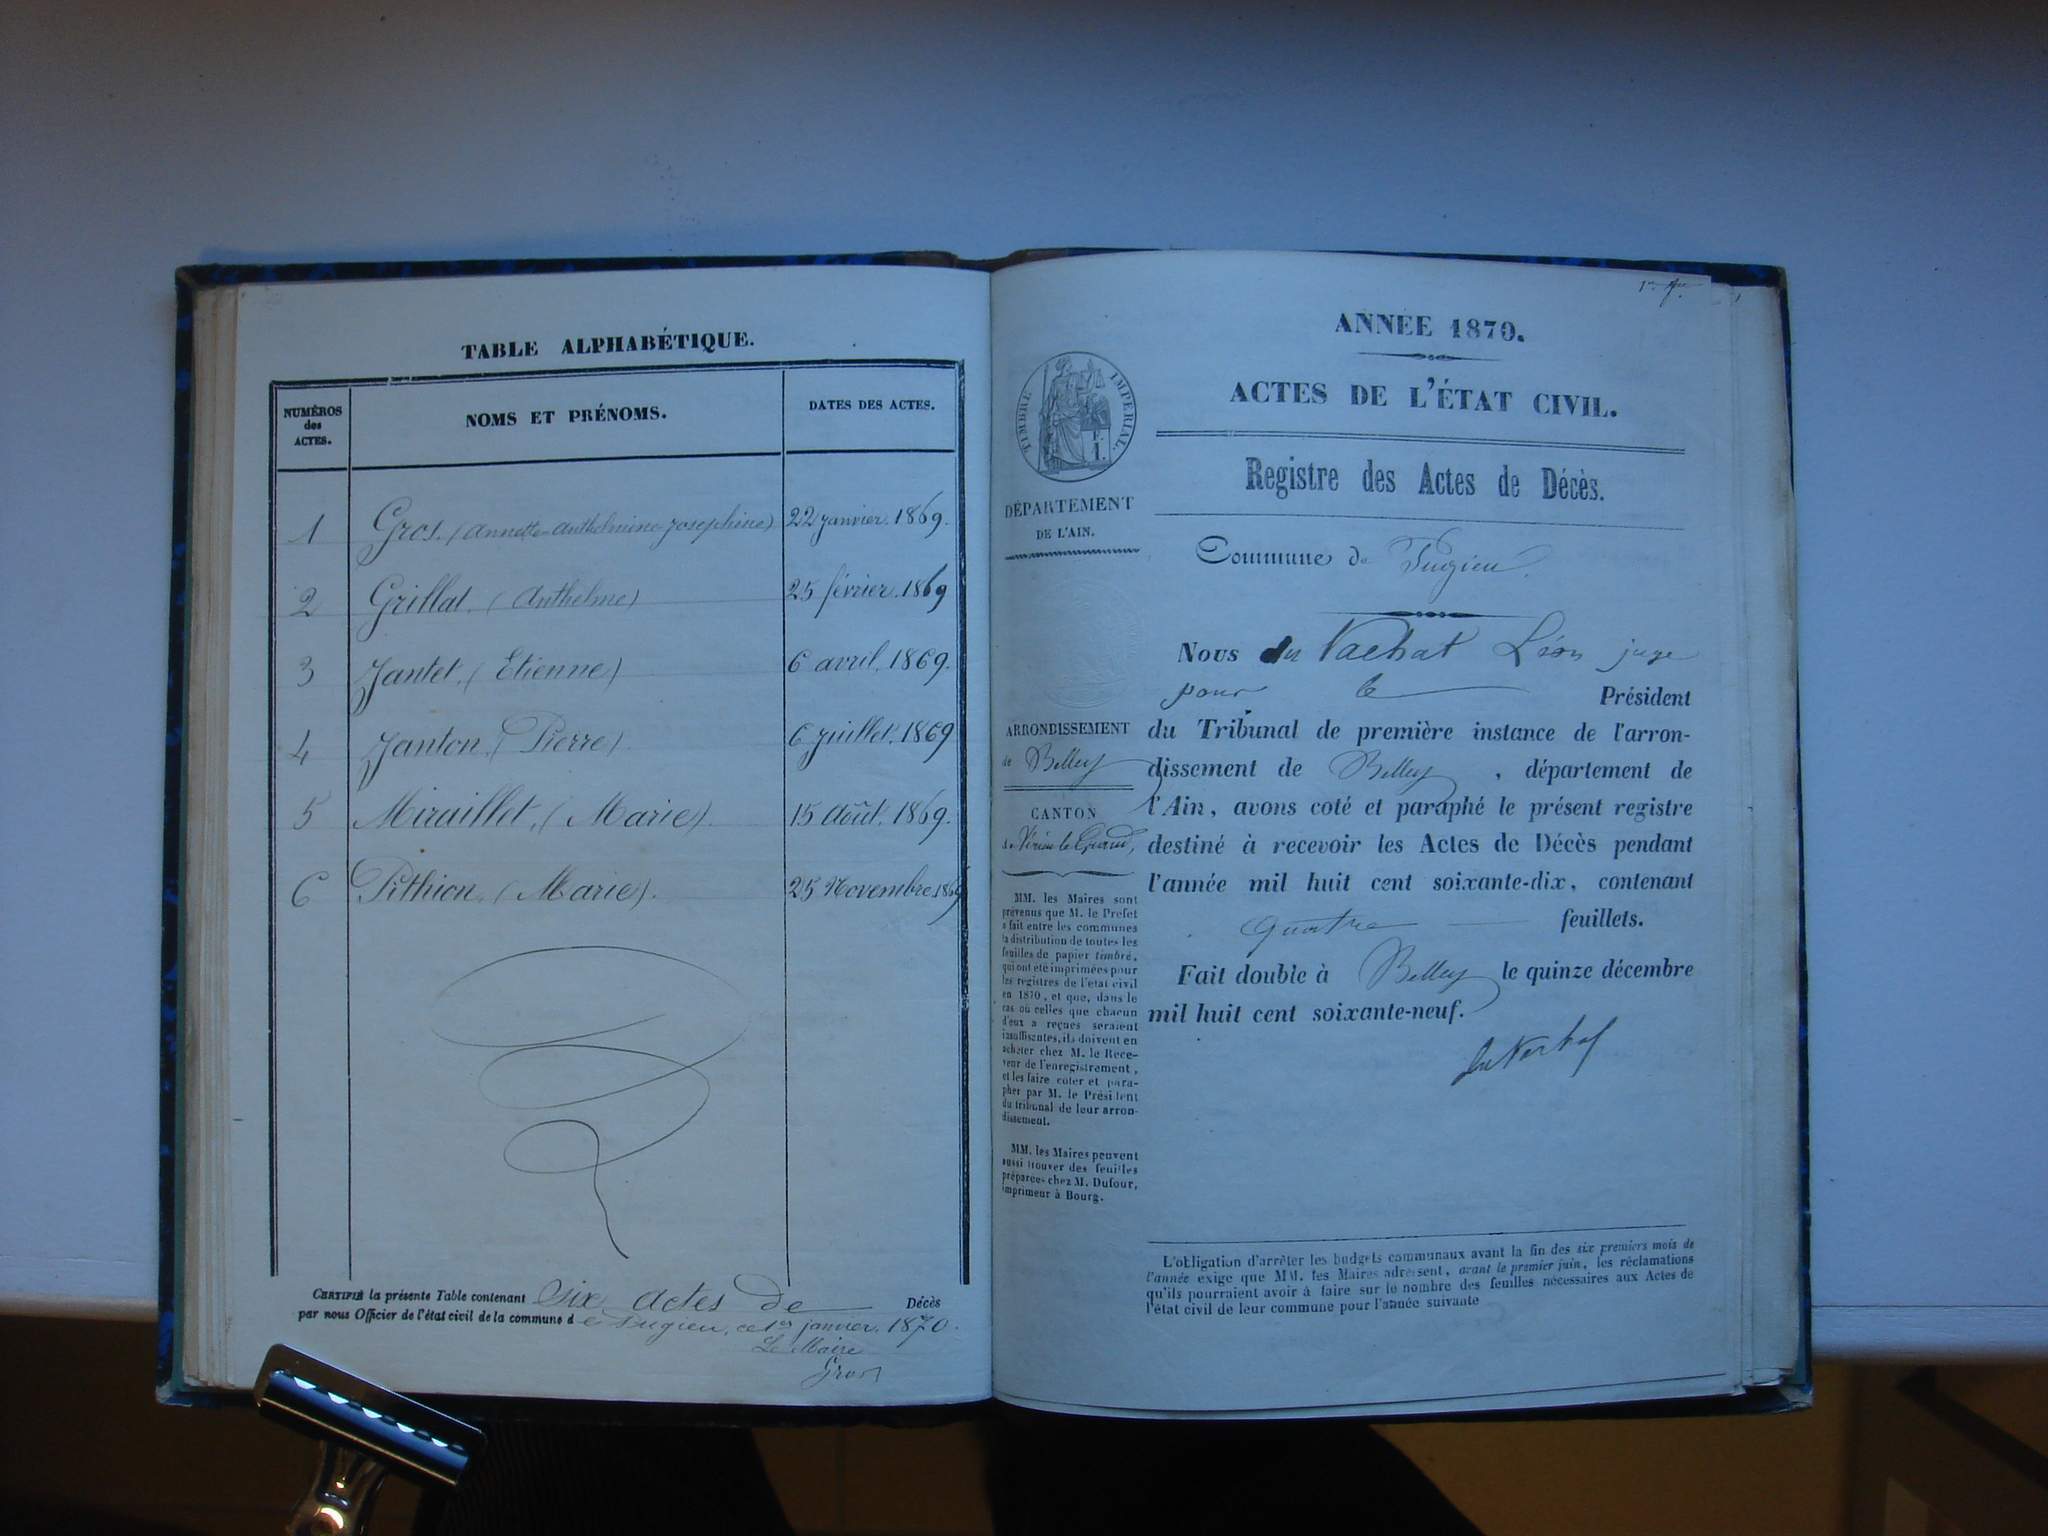 TABLE ALPHABÉTIQUE.
NUMÉROS
des
ACTES.
NOMS ET PRÉNOMS.
DATES DES ACTES.
1 Gros. (Annette-Anthelmine-Joséphine) 22 janvier. 1869.
2 Grillat. (Anthelme) 25 février. 1869
3 Jantet. (Etienne) 6 avril. 1869.
4 Janton. (Pierre) 6 juillet. 1869
5 Miraillet. (Marie). 15 Août. 1869.
6 Pithion. (Marie). 25 Novembre 1869
CERTIFIÉ la présente Table contenant six actes de Décès
par nous Officier de l'état civil de la commune de Pugieu, ce 1er janvier. 1870.
Le Maire
Gros
ANNÉE 1870.
ACTES DE L'ÉTAT CIVIL.
Registre des Actes de Décès.
Commune de Pugieu.
TIMBRE IMPÉRIAL.
DÉPARTEMENT
DE L'AIN.
ARRONDISSEMENT
de Belley
CANTON
de Virieu le Grand,
MM. les Maires sont
prévenus que M. le Préfet
a fait entre les communes
la distribution de toutes les
feuilles de papier timbré,
qui ont été imprimées pour
les registres de l'état civil
en 1870, et que, dans le
cas où celles que chacun
d'eux a reçues seraient
insuffisantes, ils doivent en
acheter chez M. le Rece-
veur de l'enregistrement,
et les faire coter et para-
pher par M. le Président
du tribunal de leur arron-
dissement.
MM. les Maires peuvent
aussi trouver des feuilles
préparées chez M. Dufour,
imprimeur à Bourg.
Nous du Vachat Léon juge
pour le Président
du Tribunal de première instance de l'arron-
dissement de Belley, département de
l'Ain, avons coté et paraphé le présent registre
destiné à recevoir les Actes de Décès pendant
l'année mil huit cent soixante-dix, contenant
quatre feuillets.
Fait double à Belley le quinze décembre
mil huit cent soixante-neuf.
du Vachat
L'obligation d'arrêter les budgets communaux avant la fin des six premiers mois de
l'année exige que MM. les Maires adressent, avant le premier juin, les réclamations
qu'ils pourraient avoir à faire sur le nombre des feuilles nécessaires aux Actes de
l'état civil de leur commune pour l'année suivante